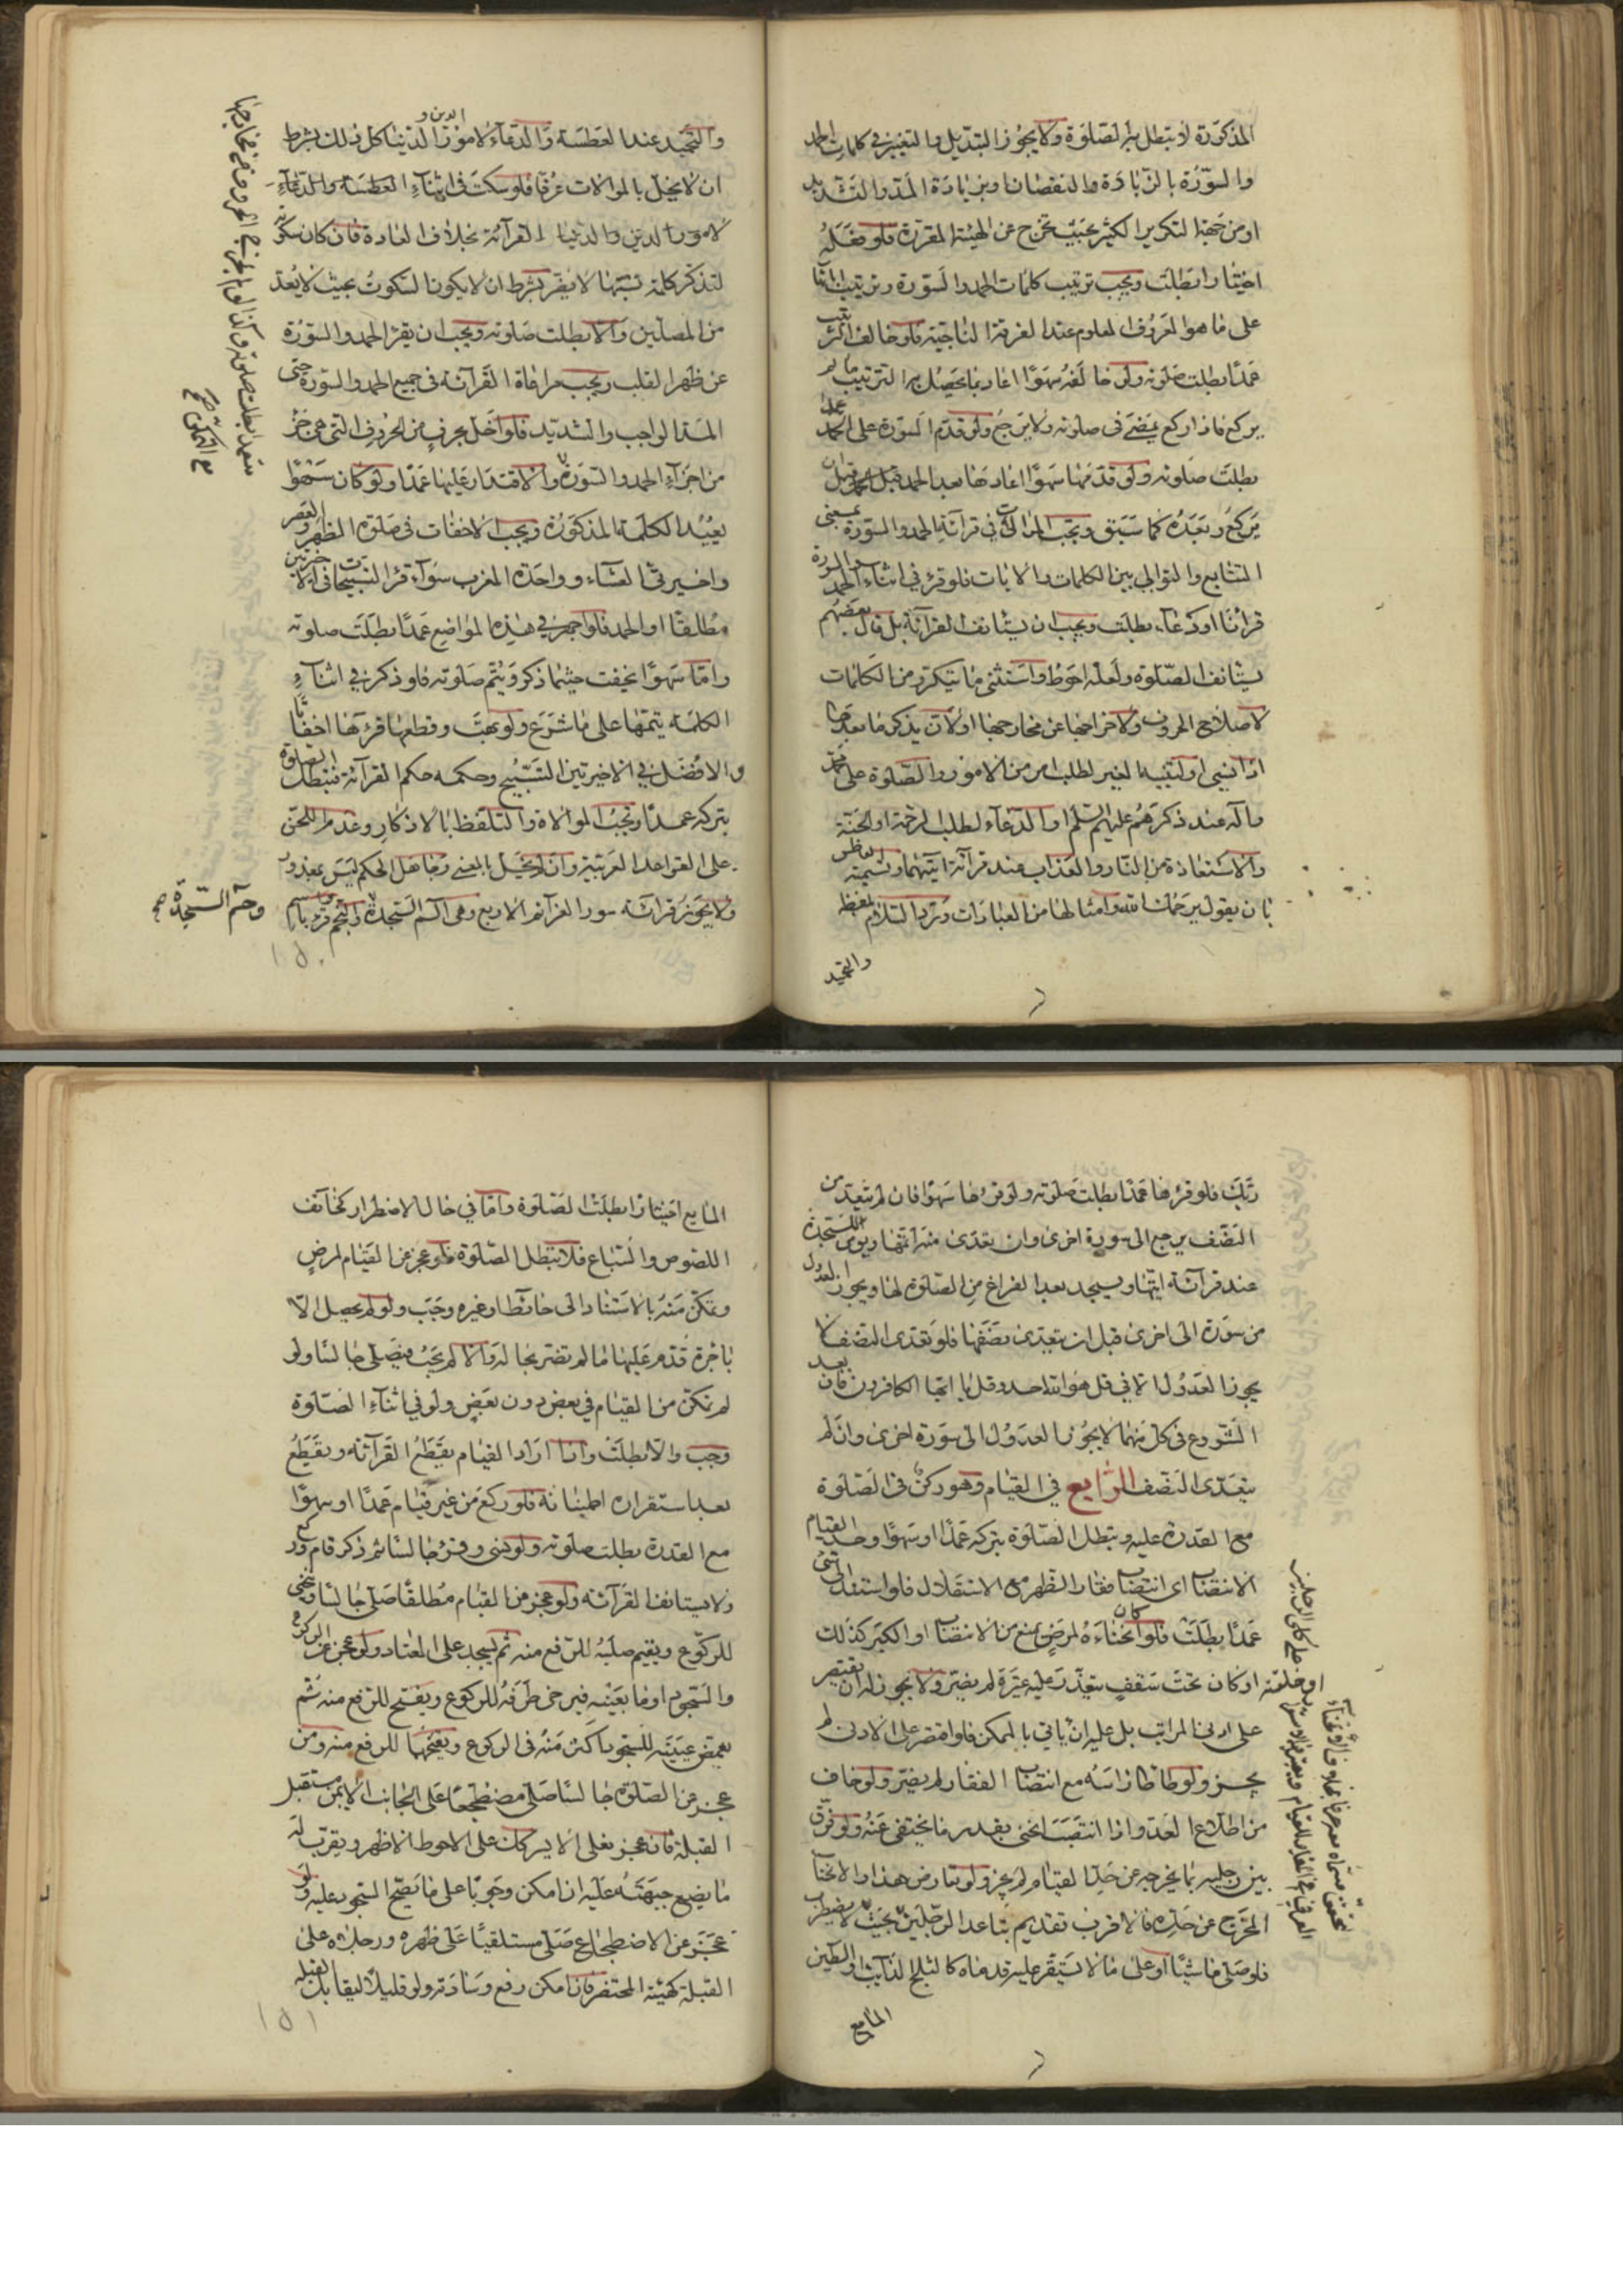 المذكورة لا تبطل بها الصلوة ولا يجوز التبديل والتغيير في كلمات الحمد
والسورة بالزيادة والنقصان وبزيادة المد والتشديد
او من جهة التكرير الكثير بحيث تخرج عن الهيئة المقررة فلو فعله
اختيارا بطلت ويجب ترتيب كلمات الحمد والسورة وترتيب اياتها
على ما هو المعروف المعلوم عند الفرقة الناجية فلو خالف الترتيب
عمدا بطلت صلوته ولو خالفه سهوا اعاد بما يحصل به الترتيب ما لم
يركع فاذا ركع يمضي في صلوته ولا يرجع ولو قدم السورة على الحمد عمدا
بطلت صلوته ولو قدمها سهوا اعادها بعد الحمد قبل ان
يركع وبعده كما سبق ويجب الموالات في قرائة الحمد والسورة بمعنى
التتابع والتوالي بين الكلمات والايات فلو قرء في اثناء الحمد والسورة
قرانا او دعاء بطلت ويجب ان يستانف القرائة بل قال بعضهم
يستانف الصلوة ولعله احوط واستثنى ما يتكرر من الكلمات
لاصلاح الحروف ولاخراجها عن مخارجها او لان يذكر ما بعدها
اذا نسي او لتنبيه الغير لطلب امر من الامور والصلوة على محمد
واله عند ذكرهم عليهم السلم او الدعاء لطلب الرحمة او الجنة
والاستعاذة من النار والعذاب عند قرائة ايتهما وتسمية العاطس
بان يقول يرحمك الله وامثالها من العبارات ورد السلام بلفظه
والتحميد
والتحميد عند العطسة والدعاء لامور الدين والدنيا كل ذلك بشرط
ان لا يخل بالموالات عرفا فلو سكت في اثناء العطسة والدعاء
لامور الدين والدنيا القرائة بخلاف العادة فان كان سكوته
لتذكر كلمة نسيها لا يضر بشرط ان لا يكون السكوت بحيث لا يعد
من المصلين والا بطلت صلوته ويجب ان يقرء الحمد والسورة
عن ظهر القلب ويجب مراعاة القرائة في جميع الحمد والسورة حتى
المد الواجب والتشديد فلو اخل بحرف من الحروف التي هي جزء
من اجزاء الحمد والسورة والاقتدار عليها عمدا ولو كان سهوا
يعيد الكلمة المذكورة ويجب الاخفات في صلوة الظهر والعصر
واخيرتي العشاء وواحدة المغرب سواء قرء التسبيحات في الاخيرتين
مطلقا او الحمد فلو اجهر في هذه المواضع عمدا بطلت صلوته
واما سهوا يخفت حيثما ذكر ويتم صلوته فلو ذكر في اثناء
الكلمة يتمها على ما شرع ولو بهت وقطعها قرءها اخفاتا
والافضل في الاخيرتين التسبيح وحكمه حكم القرائة فتبطل الصلوة
بتركه عمدا وتجب الموالاة والتلفظ بالاذكار وعدم اللحن
على القواعد العربية وان لم يخل بالمعنى وجاهل الحكم ليس بمعذور
ولا يجوز قرائة سور العزائم الاربع وهي الم السجدة والنجم واقرء باسم
وحم السجدة صح
ربك فلو قرءها عمدا بطلت صلوته ولو قرءها سهوا فان لم يتعد من
النصف يرجع الى سورة اخرى وان تعدى منه اتمها ويومي للسجدة
عند قرائة ايتها ويسجد بعد الفراغ من الصلوة لها ويجوز العدول
من سورة الى اخرى قبل ان يتعدى نصفها فلو تعدى النصف لا
يجوز العدول الا في قل هو الله احد وقل يا ايها الكافرون فان بعد
الشروع في كل منهما لا يجوز العدول الى سورة اخرى وان لم
يتعدى النصف الرابع في القيام وهو ركن في الصلوة
مع القدرة عليه وتبطل الصلوة بتركه عمدا او سهوا وحد القيام
الانتصاب اي انتصاب فقار الظهر مع الاستقلال فلو استند الى شئ
عمدا بطلت فلو كان انحناءه لمرض يمنع من الانتصاب او الكبر كذلك
او خلقة او كان تحت سقف يتعذر عليه غيره لم يضر ولا يجوز له ان يقتصر
على ادنى المراتب بل عليه ان ياتي بالممكن فلو اقتصر على الادنى لم
يجز ولو طاطا راسه مع انتصاب الفقار لم يضر ولو خاف
من اطلاع العدو اذا انتصب انحنى بقدر ما يختفي عنه ولو فرق
بين رجليه بما يخرجه عن حد القيام لم يجز ولو تعارض هذا والانحناء
المخرج عن حده فالاقرب تقديم تباعد الرجلين بحيث لا يضطر
فلو صلى ماشيا او على ما لا يستقر عليه قدماه كالثلج الذائب والطين
المايع
المايع اختيارا بطلت الصلوة واما في حال الاضطرار كخائف
اللصوص والسباع فلا تبطل الصلوة فلو عجز عن القيام لمرض
وتمكن منه بالاستناد الى حائط او غيره وجب ولو لم يحصل الا
باجرة قدم عليها ما لم تضر بحاله والا لم يجب فيصلي جالسا ولو
لم يتمكن من القيام في بعض دون بعض ولو في اثناء الصلوة
وجب والا بطلت واذا اراد القيام يقطع القرائة ويقطع
بعد استقراره اطمينانه فلو ركع من غير قيام عمدا او سهوا
مع القدرة بطلت صلوته ولو نسي وقرء جالسا ثم ذكر قام وركع
ولا يستانف القرائة ولو عجز من القيام مطلقا صلى جالسا وينحني
للركوع ويقيم صلبه للرفع منه ثم يسجد على المعتاد ولو عجز عن الركوع
والسجود اوما بعينيه فيرخي طرفه للركوع ويفتح للرفع منه ثم
يغمض عينيه للسجود اكثر منه في الركوع ويفتحهما للرفع منه ومن
عجز عن الصلوة جالسا صلى مضطجعا على الجانب الايمن مستقبل
القبلة فان عجز فعلى الايسر كان على الاحوط الاظهر ويقرب له
ما يضع جبهته عليه ان امكن وجوبا على ما يصح السجود عليه ولو
عجز عن الاضطجاع صلى مستلقيا على ظهره ورجلاه على
القبلة كهيئة المحتضر فان امكن رفع وسادته ولو قليلا ليقابل القبلة